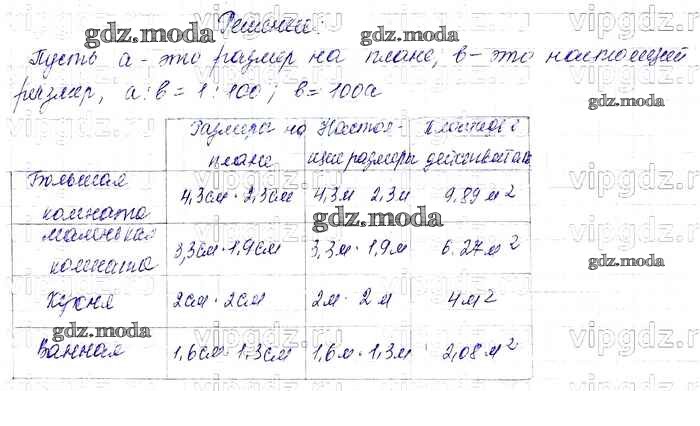 Решение:
Пусть a - это размер на плане, b - это настоящий
размер, a : b = 1 : 100 ; b = 100a
Размеры на плане | Настоящие размеры | Площадь действит.
Большая комната | 4,3см · 2,3см | 4,3м 2,3м | 9,89 м²
Маленькая комната | 3,3см · 1,9см | 3,3м · 1,9м | 6.27м²
Кухня | 2см · 2см | 2м · 2м | 4м²
Ванная | 1,6см · 1,3см | 1,6м · 1,3м | 2,08м²
gdz.moda
gdz.moda
gdz.moda
gdz.moda
gdz.moda
gdz.moda
gdz.moda
vipgdz.ru